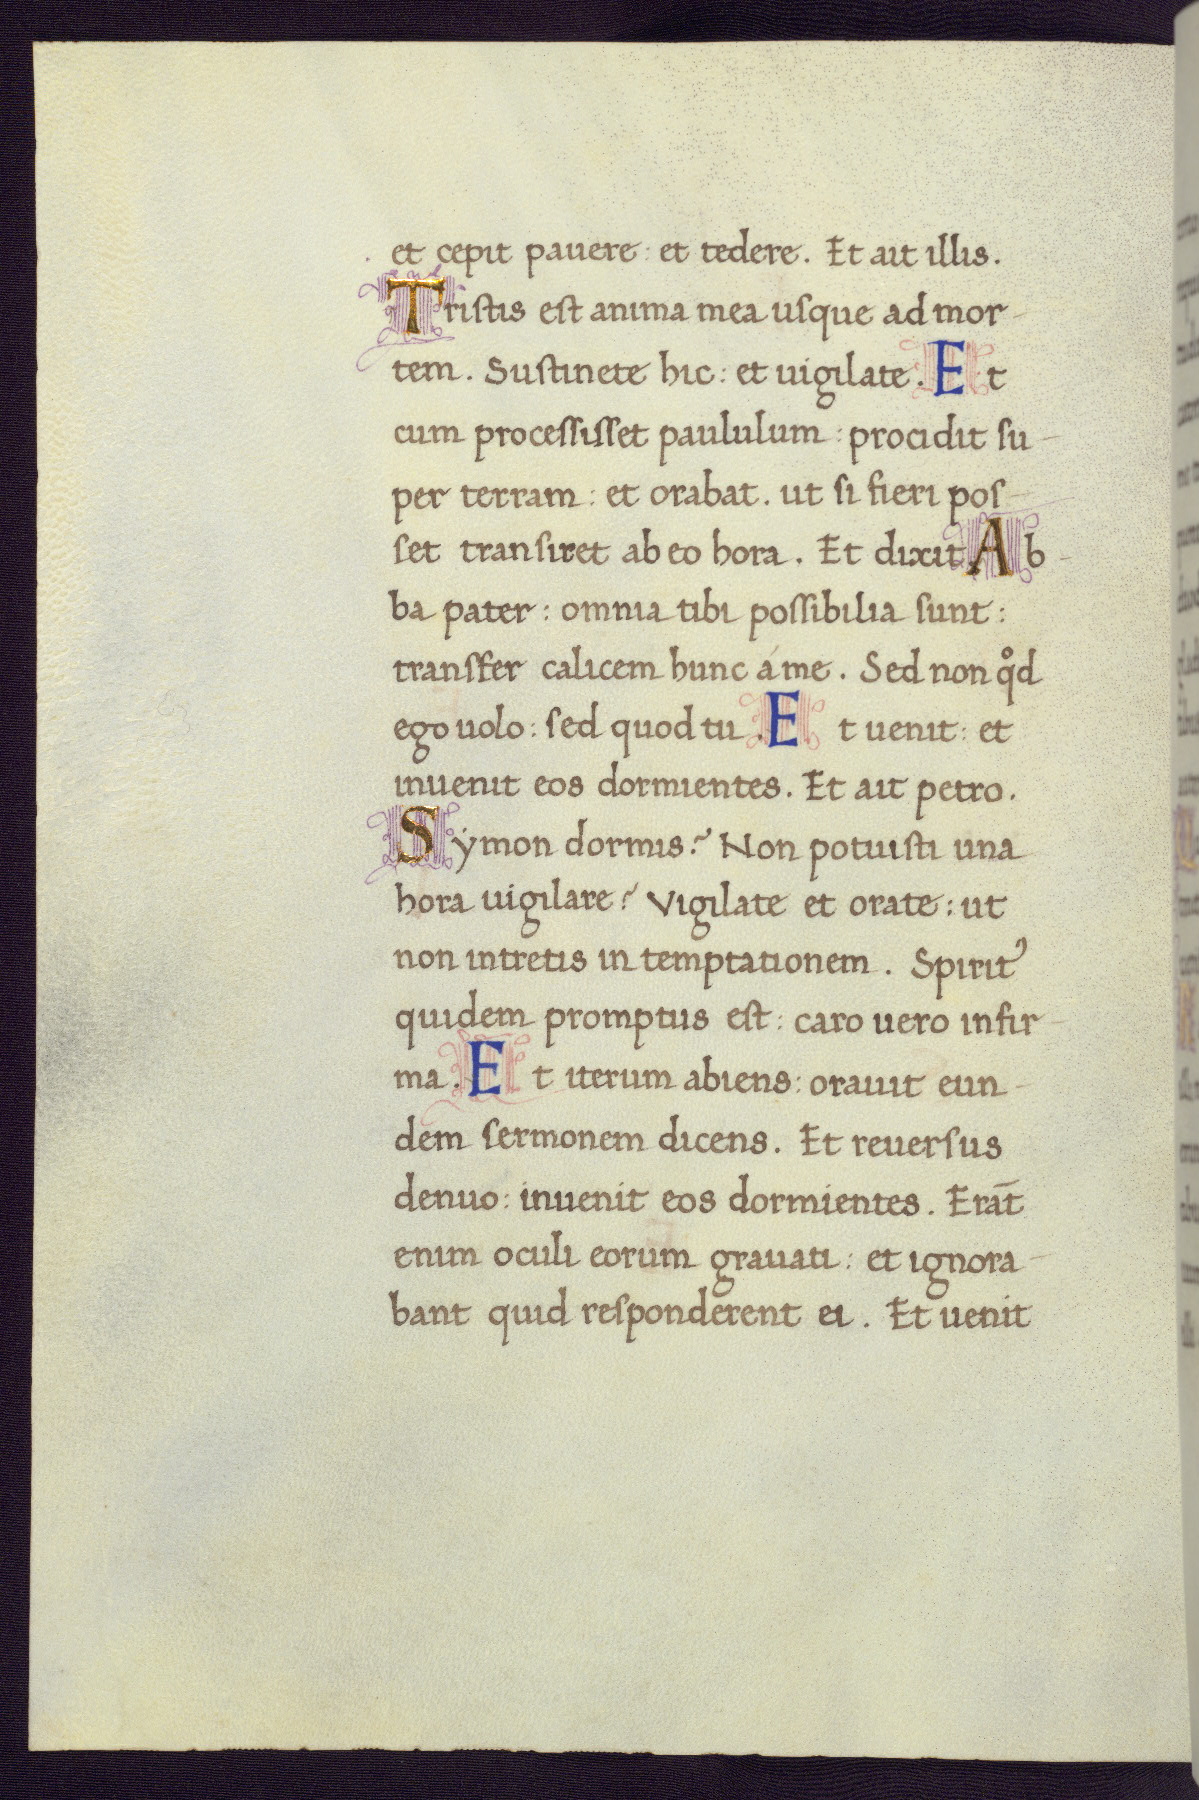 et cepit pauere : et tedere. Et ait illis.
Tristis est anima mea usque ad mor-
tem. Sustinete hic : et uigilate. Et
cum processisset paululum : procidit su-
per terram : et orabat. ut si fieri pos-
set transiret ab eo hora. Et dixit Ab-
ba pater : omnia tibi possibilia sunt :
transfer calicem hunc á me. Sed non qͦd
ego uolo : sed quod tu. Et uenit : et
inuenit eos dormientes. Et ait petro.
Sẏmon dormis? Non potuisti una
hora uigilare? Vigilate et orate : ut
non intretis in temptationem. Spiritꝰ
quidem promptus est : caro uero infir-
ma. Et iterum abiens : orauit eun-
dem sermonem dicens. Et reuersus
denuo : inuenit eos dormientes. Erāt
enim oculi eorum grauati : et ignora-
bant quid responderent ei. Et uenit